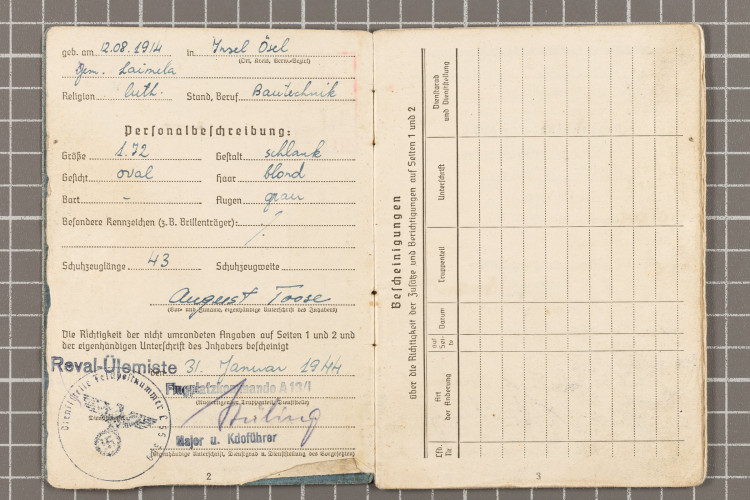 geb. am 12.08.1914 in Insel Ösel
(Ort, Kreis, Verw.-Bezirk)
Gem. Laimela
Religion luth. Stand, Beruf Bautechnik
Personalbeschreibung:
Größe 1.72 Gestalt schlank
Gesicht oval Haar blond
Bart - Augen grau
Besondere Kennzeichen (z.B. Brillenträger):
Schuhzeuglänge 43 Schuhzeugweite
August Toose
(Vor- und Zuname, eigenhändige Unterschrift des Inhabers)
Die Richtigkeit der nicht umrandeten Angaben auf Seiten 1 und 2 und
der eigenhändigen Unterschrift des Inhabers bescheinigt
Reval-Ülemiste den 31. Januar 1944
Flugplatzkommando A 13/I
Dienststelle Feldpostnummer L
Major u. Kdoführer
(Eigenhändige Unterschrift, Dienstgrad u. Dienststellung des Vorgesetzten)
2
Bescheinigungen
über die Richtigkeit der Zusätze und Berichtigungen auf Seiten 1 und 2
Lfd. Nr.
Art der Änderung
auf Sei- te
Datum
Truppenteil
Unterschrift
Dienstgrad und Dienststellung
3